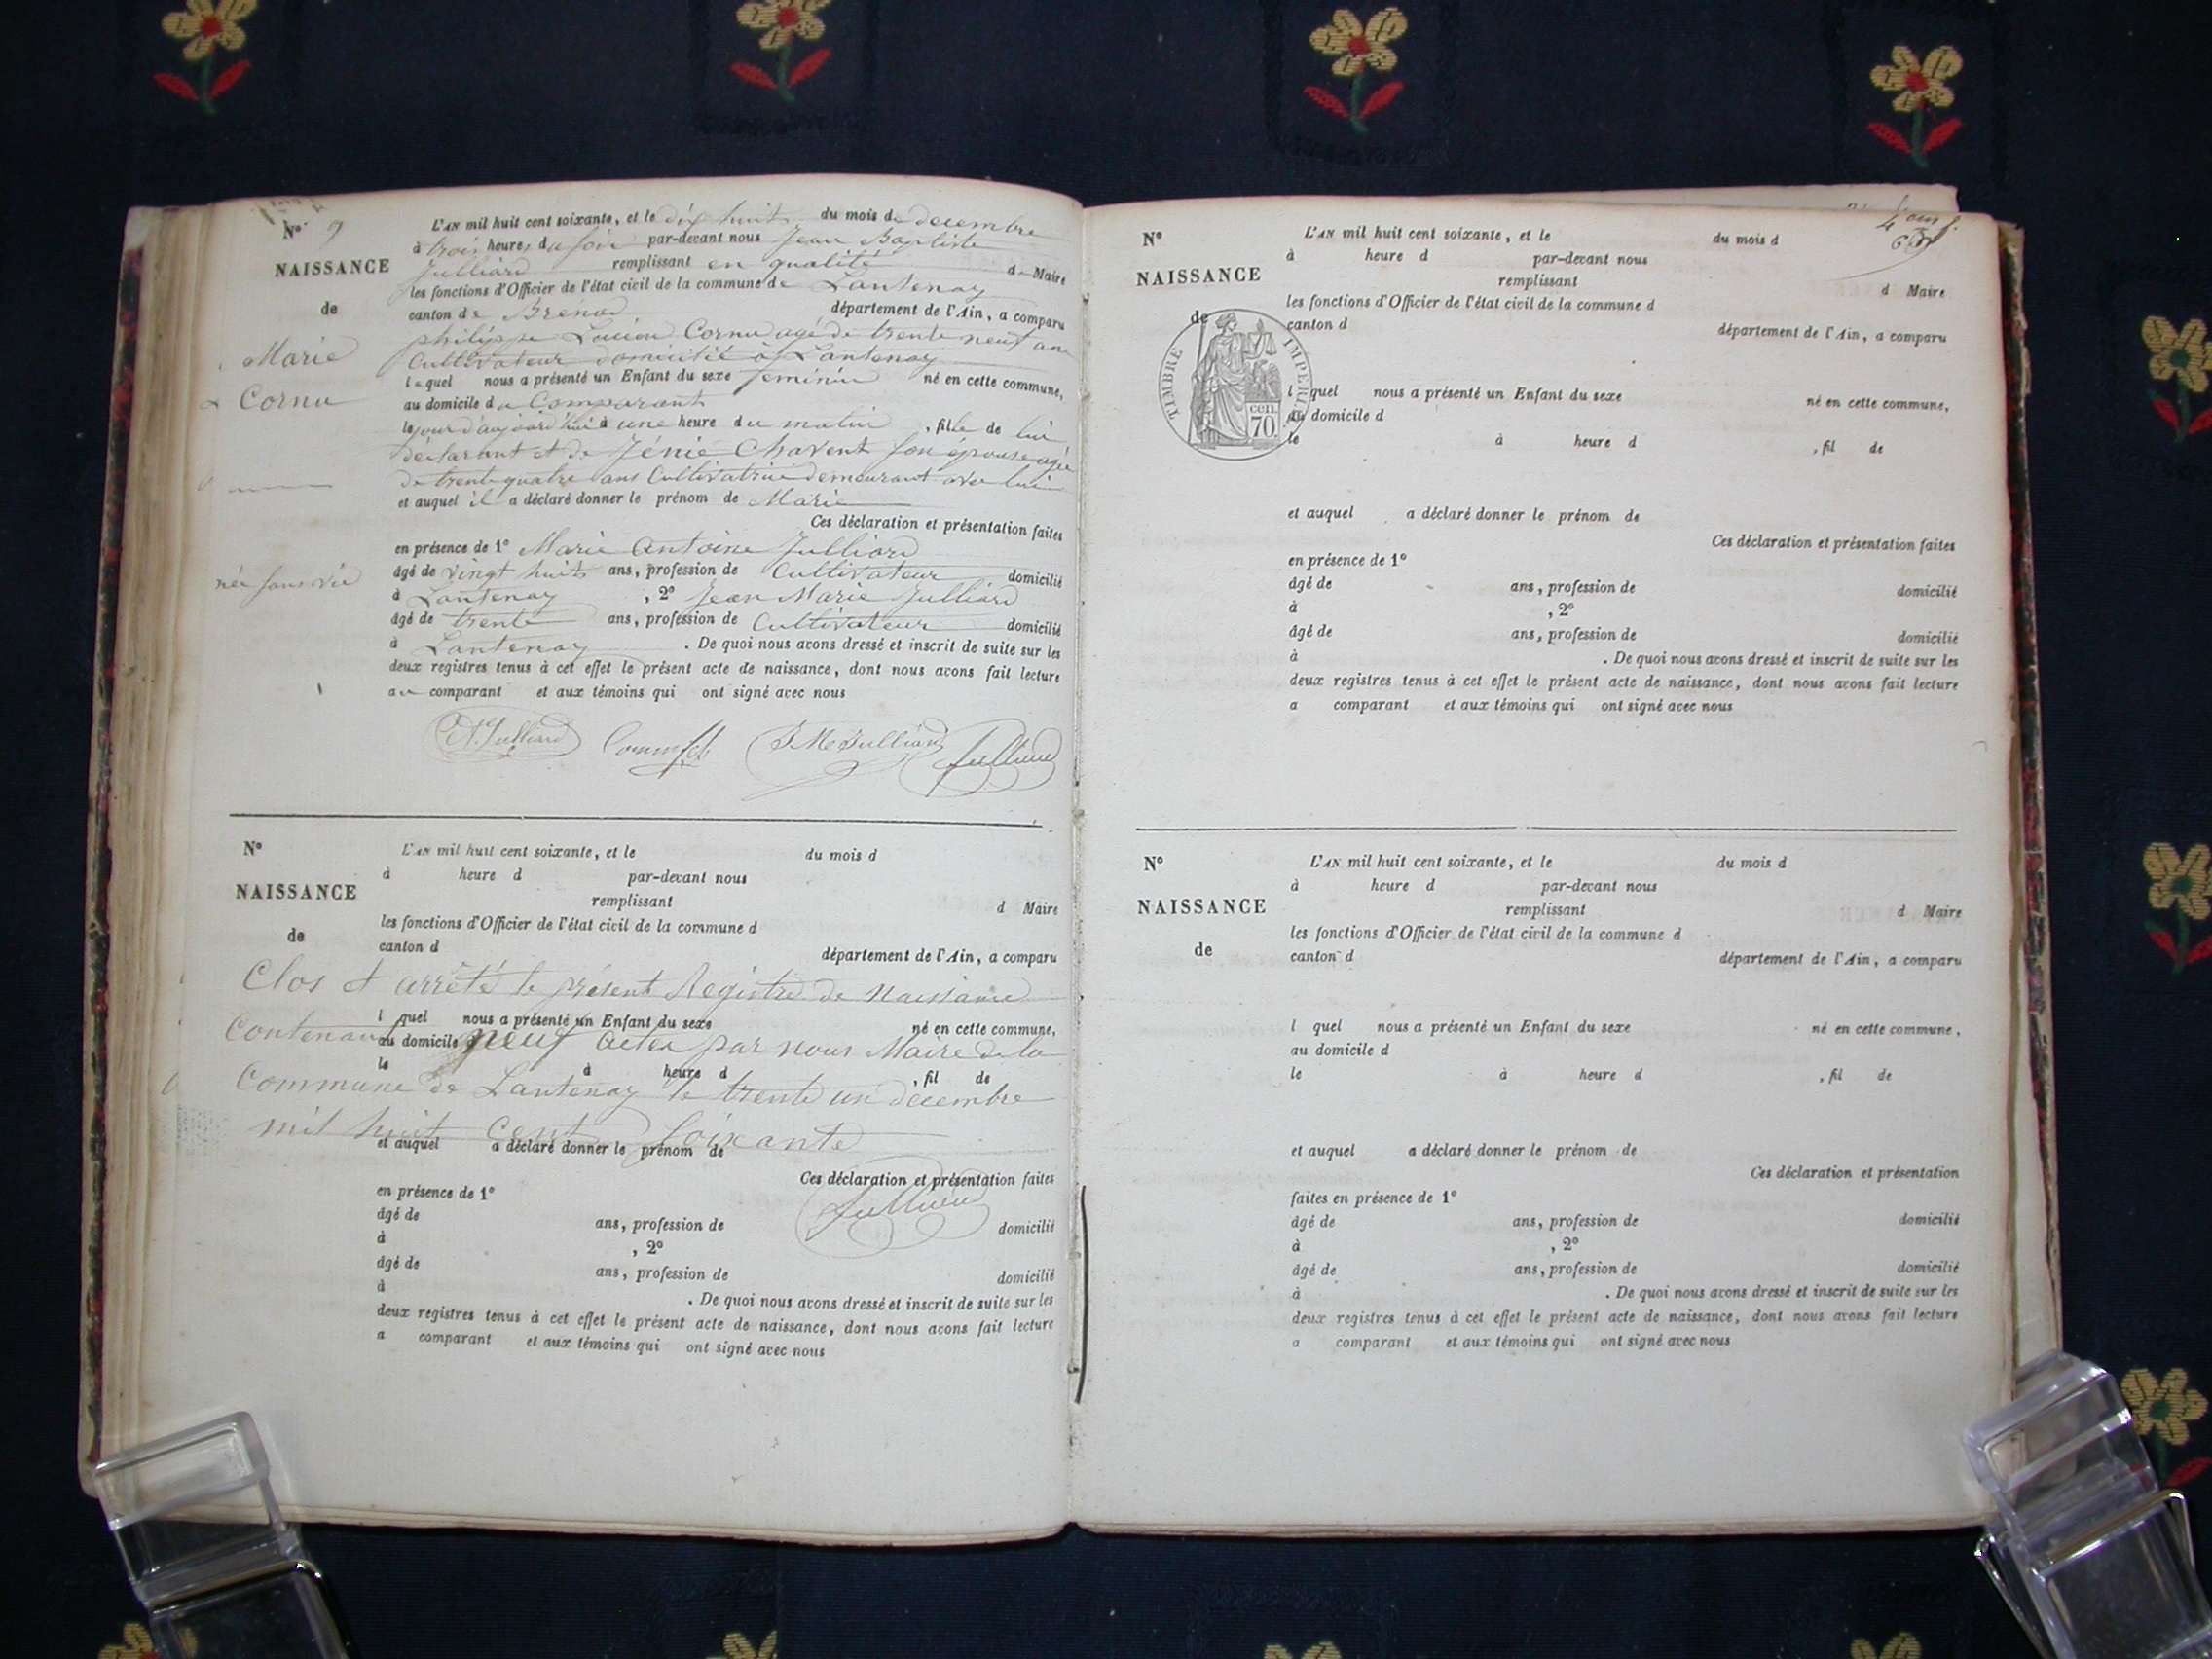 N° 9
NAISSANCE
de
Marie
Cornu
née sans vie
L'AN mil huit cent soixante, et le dix huit du mois de decembre
à trois heures du soir par-devant nous Jean Baptiste
Julliard remplissant en qualité de Maire
les fonctions d'Officier de l'état civil de la commune de Lantenay
canton de Brénod département de l'Ain, a comparu
philippe Lucien Cornu agé de trente neuf ans
Cultivateur domicilié à Lantenay
lequel nous a présenté un Enfant du sexe feminin né en cette commune,
au domicile du Comparant
le jour d'aujourd'hui à une heure du matin, fille de lui
déclarant et de Jénie Chavent son épouse agée
de trente quatre ans Cultivatrice demeurant avec lui
et auquel il a déclaré donner le prénom de Marie
Ces déclaration et présentation faites
en présence de 1° Marie Antoine Julliard
âgé de vingt huit ans, profession de Cultivateur domicilié
à Lantenay, 2° Jean Marie Julliard
âgé de trente ans, profession de Cultivateur domicilié
à Lantenay. De quoi nous avons dressé et inscrit de suite sur les
deux registres tenus à cet effet le présent acte de naissance, dont nous avons fait lecture
au comparant et aux témoins qui ont signé avec nous
A. Julliard J M Julliard Julliard
N°
NAISSANCE
de
L'AN mil huit cent soixante, et le du mois d
à heure d par-devant nous
remplissant d Maire
les fonctions d'Officier de l'état civil de la commune d
canton d
département de l'Ain, a comparu
Clos et arrêté le présent Registre de Naissance
l quel nous a présenté un Enfant du sexe né en cette commune,
Contenant neuf actes par nous Maire de la
au domicile d
le à heure d , fil de
Commune de Lantenay le trente un decembre
mil huit cent soixante
et auquel a déclaré donner le prénom de
Ces déclaration et présentation faites
Julliard
en présence de 1°
âgé de ans, profession de domicilié
à , 2°
âgé de ans, profession de domicilié
à . De quoi nous avons dressé et inscrit de suite sur les
deux registres tenus à cet effet le présent acte de naissance, dont nous avons fait lecture
a comparant et aux témoins qui ont signé avec nous
N°
NAISSANCE
de
TIMBRE IMPERIAL
70 cen.
L'AN mil huit cent soixante, et le du mois d
à heure d par-devant nous
remplissant d Maire
les fonctions d'Officier de l'état civil de la commune d
canton d département de l'Ain, a comparu
l quel nous a présenté un Enfant du sexe né en cette commune,
au domicile d
le à heure d , fil de
et auquel a déclaré donner le prénom de
Ces déclaration et présentation faites
en présence de 1°
âgé de ans, profession de domicilié
à , 2°
âgé de ans, profession de domicilié
à . De quoi nous avons dressé et inscrit de suite sur les
deux registres tenus à cet effet le présent acte de naissance, dont nous avons fait lecture
a comparant et aux témoins qui ont signé avec nous
N°
NAISSANCE
de
L'AN mil huit cent soixante, et le du mois d
à heure d par-devant nous
remplissant d Maire
les fonctions d'Officier de l'état civil de la commune d
canton d département de l'Ain, a comparu
l quel nous a présenté un Enfant du sexe né en cette commune.
au domicile d
le à heure d , fil de
et auquel a déclaré donner le prénom de
Ces déclaration et présentation
faites en présence de 1°
âgé de ans, profession de domicilié
à , 2°
âgé de ans, profession de domicilié
à . De quoi nous avons dressé et inscrit de suite sur les
deux registres tenus à cet effet le présent acte de naissance, dont nous avons fait lecture
a comparant et aux témoins qui ont signé avec nous